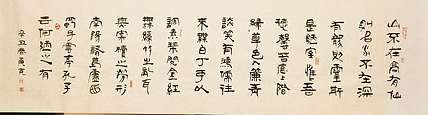 山不在高有仙
則名水不在深
有龍則靈斯
是陋室惟吾
德馨苔痕上階
綠草色入簾青
談笑有鴻儒往
來無白丁可以
調素琴閱金經
無絲竹之亂耳
無案牘之勞形
南陽諸葛廬西
蜀子雲亭孔子
云何陋之有
辛丑